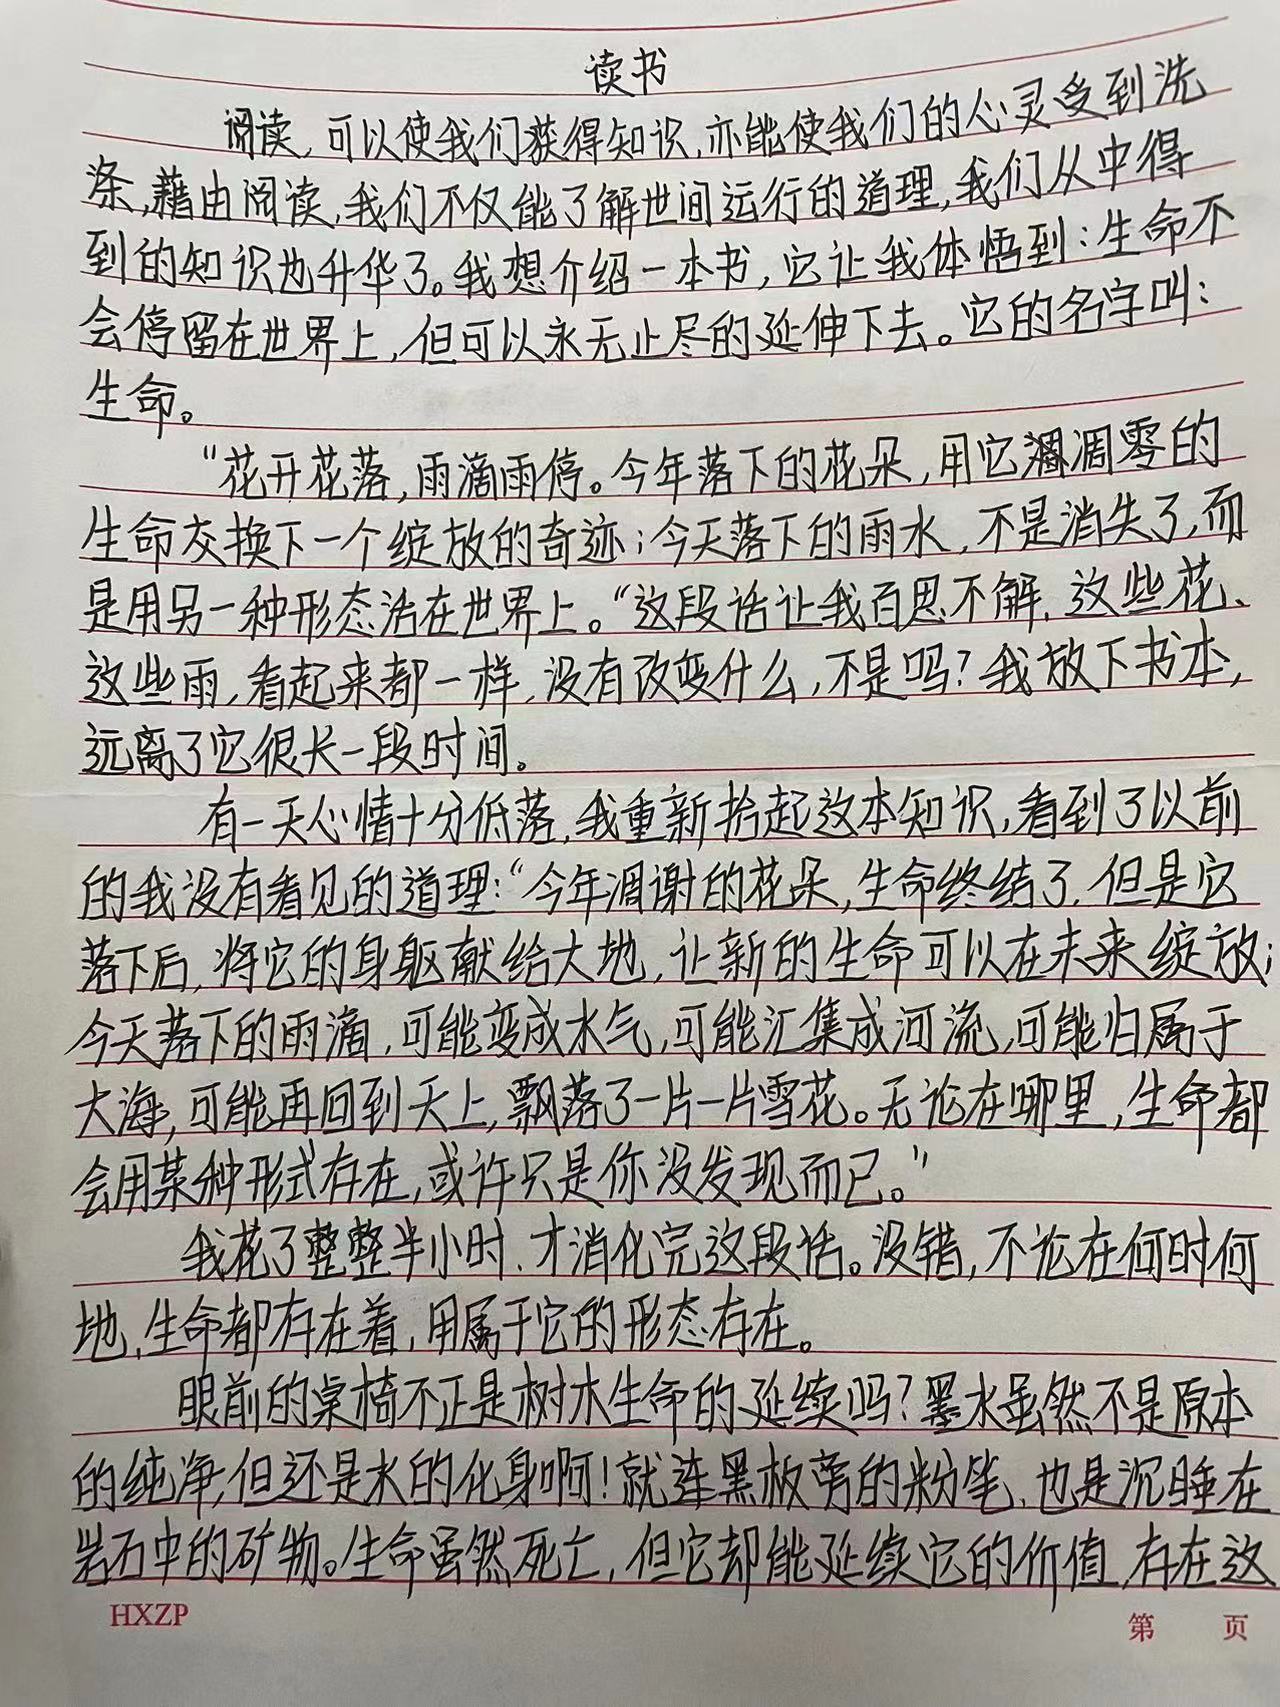 读书
阅读,可以使我们获得知识,亦能使我们的心灵受到洗
涤,藉由阅读,我们不仅能了解世间运行的道理,我们从中得
到的知识也升华了。我想介绍一本书,它让我体悟到:生命不
会停留在世界上,但可以永无止尽的延伸下去。它的名字叫:
生命。
“花开花落,雨滴雨停。今年落下的花朵,用它凋零的
生命交换下一个绽放的奇迹;今天落下的雨水,不是消失了,而
是用另一种形态活在世界上。“这段话让我百思不解,这些花、
这些雨,看起来都一样,没有改变什么,不是吗?我放下书本,
远离了它很长一段时间。
有一天心情十分低落,我重新拾起这本知识,看到了以前
的我没有看见的道理:“今年凋谢的花朵,生命终结了,但是它
落下后,将它的身躯献给大地,让新的生命可以在未来绽放;
今天落下的雨滴,可能变成水气,可能汇集成河流,可能归属于
大海,可能再回到天上,飘落了一片一片雪花。无论在哪里,生命都
会用某种形式存在,或许只是你没发现而已。”
我花了整整半小时,才消化完这段话。没错,不论在何时何
地,生命都存在着,用属于它的形态存在。
眼前的桌椅不正是树木生命的延续吗?墨水虽然不是原本
的纯净,但还是水的化身啊!就连黑板旁的粉笔,也是沉睡在
岩石中的矿物。生命虽然死亡,但它却能延续它的价值,存在这
HXZP
第 页